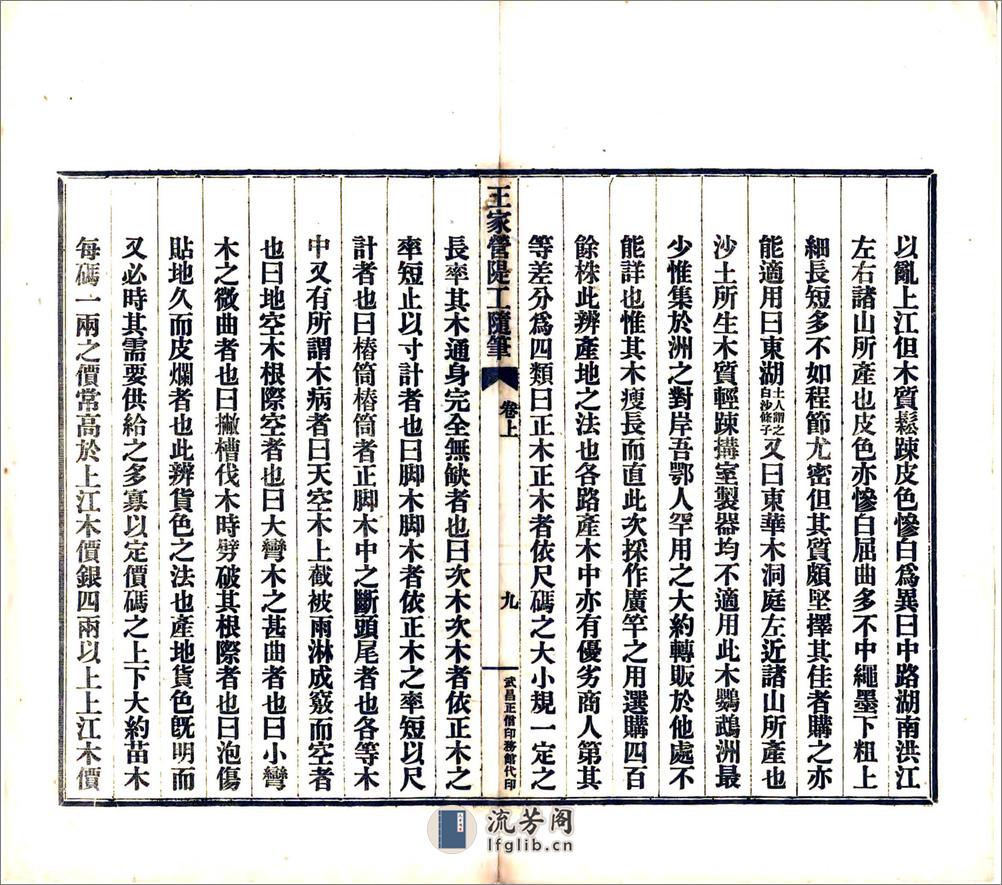 以亂上江但木質鬆踈皮色慘白爲異曰中路湖南洪江
左右諸山所產也皮色亦慘白屈曲多不中繩墨下粗上
細長短多不如程節尤密但其質頗堅擇其佳者購之亦
能適用曰東湖土人謂之白沙條子又曰東華木洞庭左近諸山所產也
沙土所生木質輕踈搆室製器均不適用此木鸚鵡洲最
少惟集於洲之對岸吾鄂人罕用之大約轉販於他處不
能詳也惟其木瘦長而直此次採作廣竿之用選購四百
餘株此辨產地之法也各路產木中亦有優劣商人第其
等差分爲四類曰正木正木者依尺碼之大小規一定之
王家營隄工隨筆 卷上 九 武昌正信印務館代印
長率其木通身完全無缺者也曰次木次木者依正木之
率短止以寸計者也曰脚木脚木者依正木之率短以尺
計者也曰樁筒樁筒者正脚木中之斷頭尾者也各等木
中又有所謂木病者曰天空木上截被雨淋成竅而空者
也曰地空木根際空者也曰大彎木之甚曲者也曰小彎
木之微曲者也曰撇槽伐木時劈破其根際者也曰泡傷
貼地久而皮爛者也此辨貨色之法也產地貨色旣明而
又必時其需要供給之多寡以定價碼之上下大約苗木
每碼一兩之價常高於上江木價銀四兩以上上江木價
流芳阁
lfglib.cn